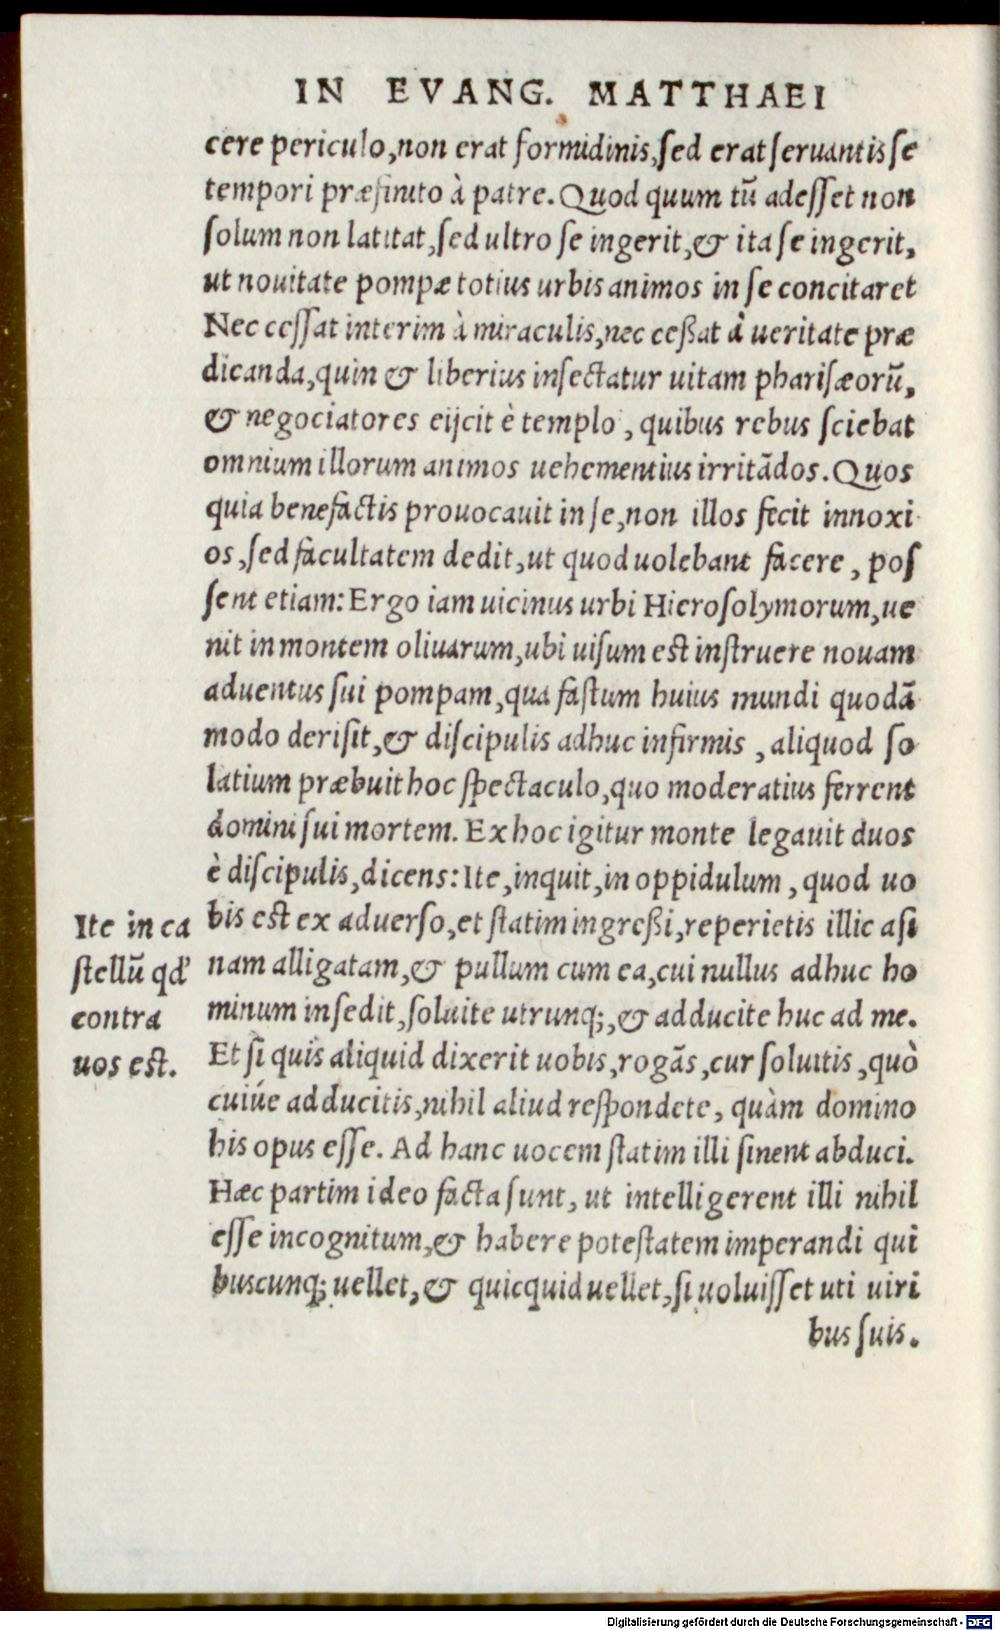 IN EVANG. MATTHAEI
cere periculo,non erat formidinis,sed erat seruantis se
tempori præfinito à patre. Quod quum tũ adesset non
solum non latitat,sed ultro se ingerit,& ita se ingerit,
ut nouitate pompæ totius urbis animos in se concitaret
Nec cessat interim à miraculis,nec ceßat à ueritate præ
dicanda,quin & liberius insectatur uitam pharisæorũ,
& negociatores eijcit è templo , quibus rebus sciebat
omnium illorum animos uehementius irritãdos. Quos
quia benefactis prouocauit in se,non illos fecit innoxi
os ,sed facultatem dedit,ut quod uolebant facere , pos
sent etiam: Ergo iam uicinus urbi Hierosolymorum,ue
nit in montem oliuarum,ubi uisum est instruere nouam
aduentus sui pompam,qua fastum huius mundi quodã
modo derisit,& discipulis adhuc infirmis , aliquod so
latium præbuit hoc spectaculo,quo moderatius ferrent
domini sui mortem. Ex hoc igitur monte legauit duos
è discipulis,dicens: Ite,inquit,in oppidulum , quod uo
bis est ex aduerso,et statim ingreßi,reperietis illic asi
nam alligatam,& pullum cum ea,cui nullus adhuc ho
minum insedit,soluite utrunq;,& adducite huc ad me.
Et si quis aliquid dixerit uobis,rogãs,cur soluitis ,quò
cuiúe adducitis,nihil aliud respondete, quàm domino
his opus esse. Ad hanc uocem statim illi sinent abduci.
Hæc partim ideo facta sunt, ut intelligerent illi nihil
esse incognitum,& habere potestatem imperandi qui
buscunq; uellet,& quicquid uellet,si uoluisset uti uiri
bus suis.
Ite in ca
stellũ qd'
contra
uos est.
Digitalisierung gefördert durch die Deutsche Forschungsgemeinschaft - DFG